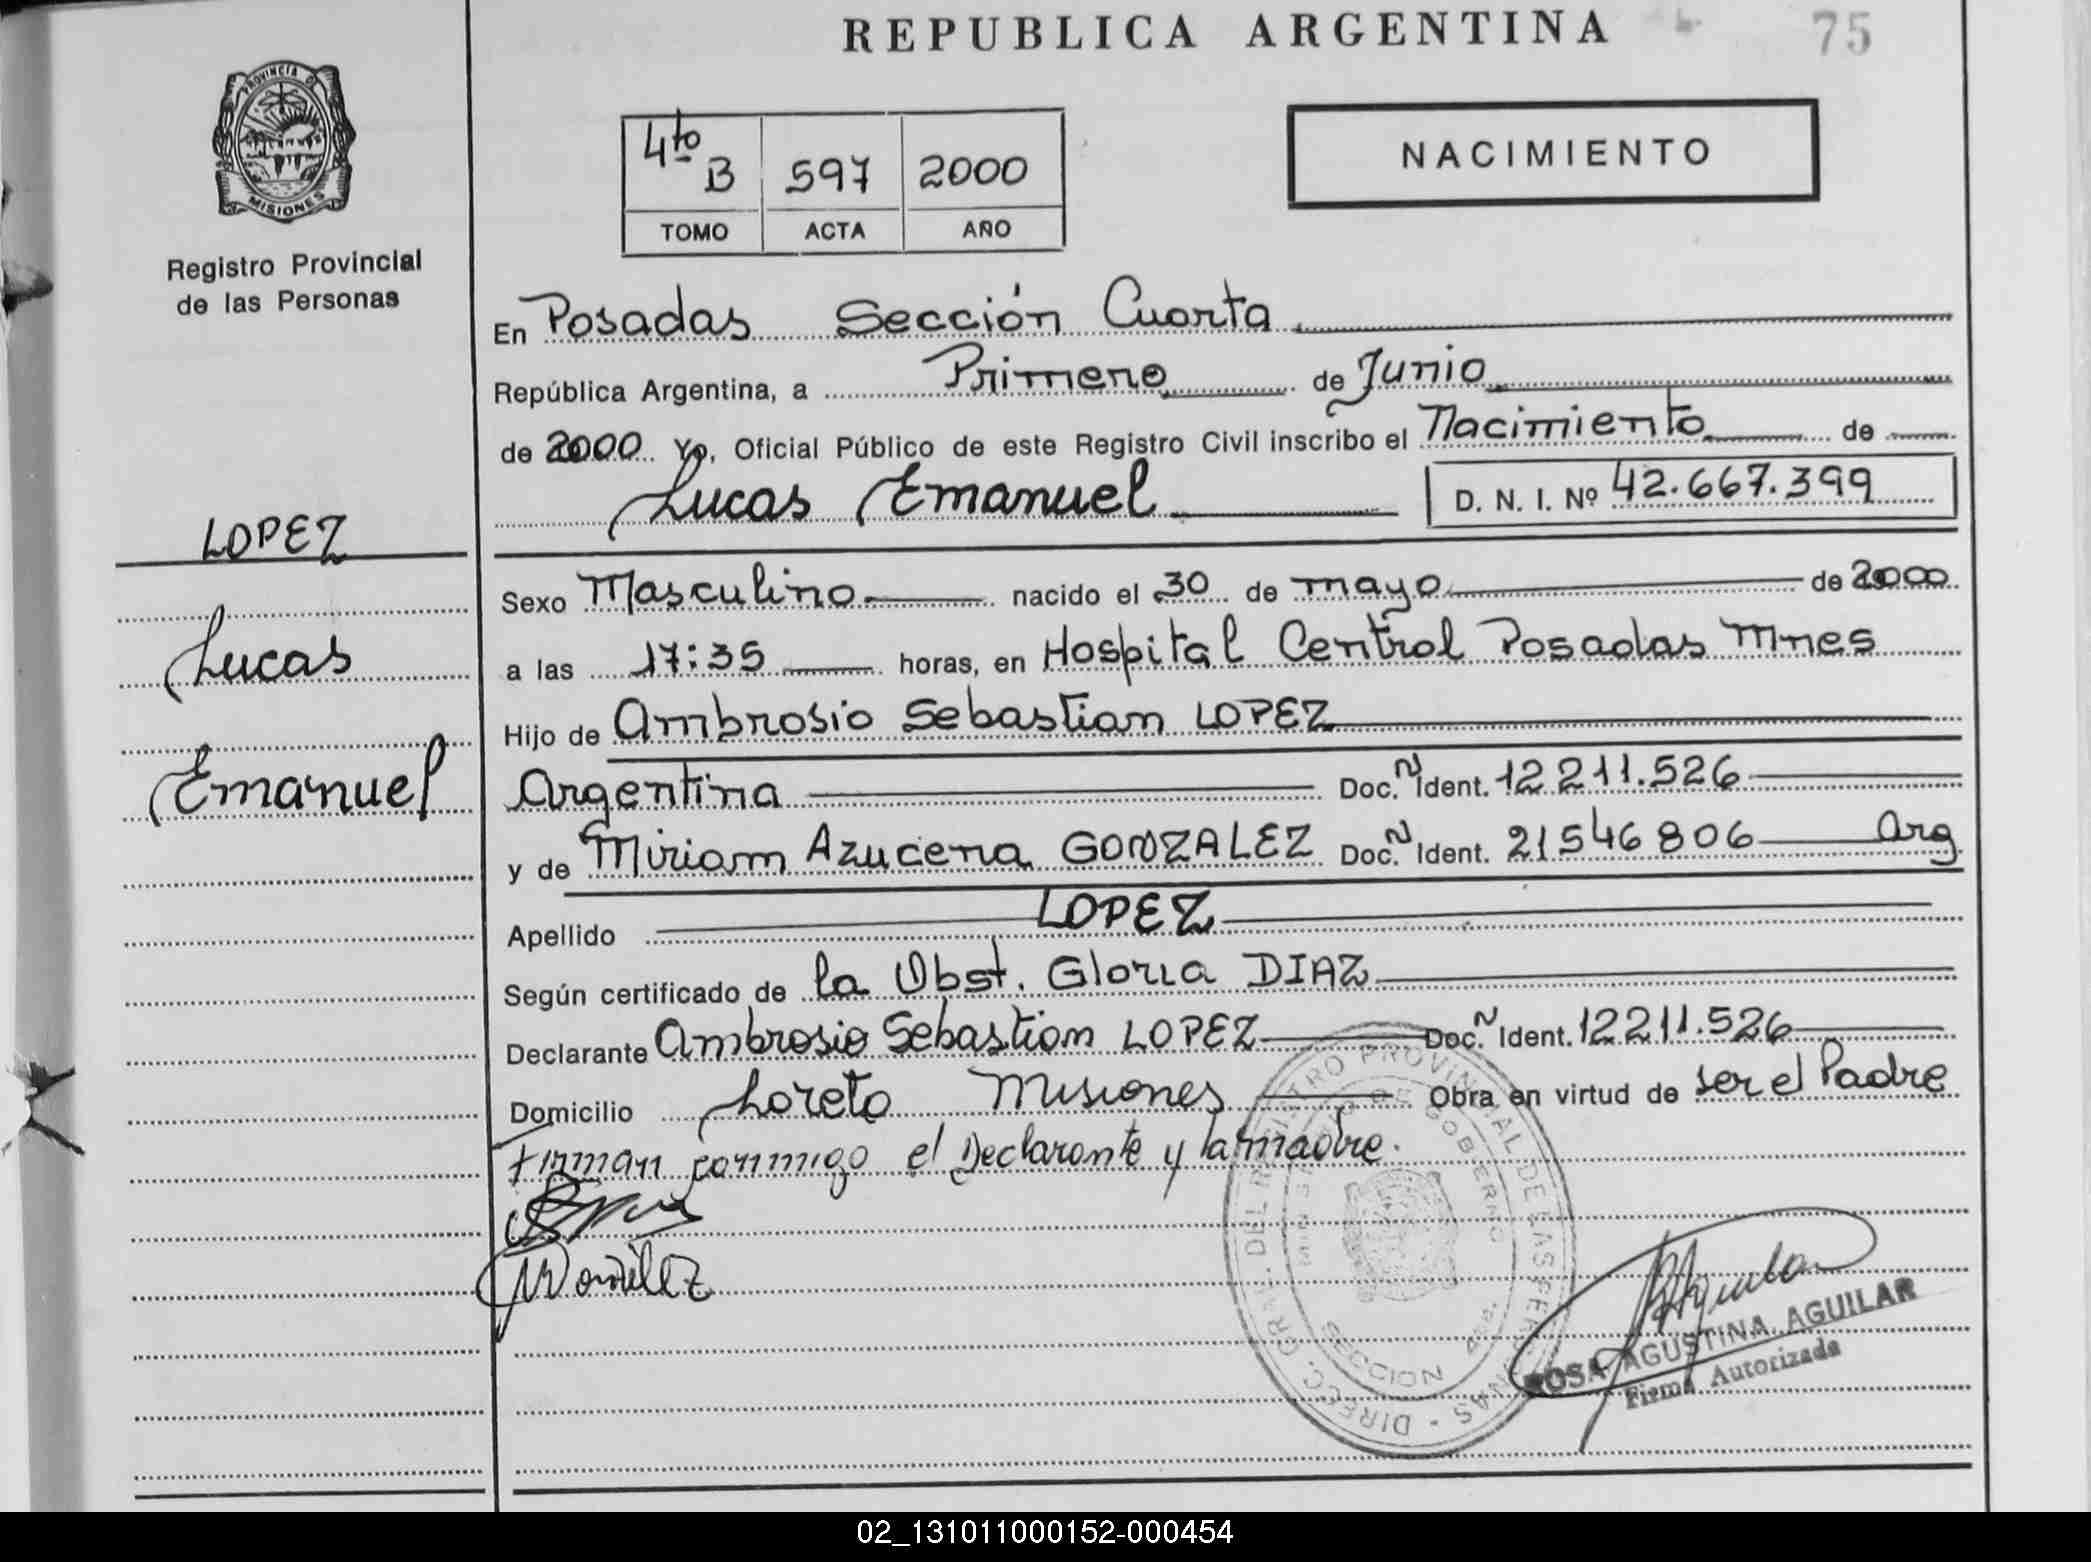 REPUBLICA ARGENTINA
75
PROVINCIA DE
MISIONES
Registro Provincial
de las Personas
4to B 597 2000
TOMO ACTA AÑO
NACIMIENTO
En Posadas Sección Cuarta
República Argentina, a Primero de Junio
de 2000 Yo, Oficial Público de este Registro Civil inscribo el Nacimiento de
Lucas Emanuel D. N. I. Nº 42.667.399
LOPEZ
Lucas
Emanuel
Sexo Masculino nacido el 30 de mayo de 2000
a las 17:35 horas, en Hospital Central Posadas Mnes
Hijo de Ambrosio Sebastian LOPEZ
Argentina Doc. N Ident. 12211.526
y de Miriam Azucena GONZALEZ Doc. N Ident. 21546806 Arg
Apellido LOPEZ
Según certificado de la Obst. Gloria DIAZ
Declarante Ambrosio Sebastian LOPEZ Doc. N Ident. 12211.526
Domicilio Loreto Misiones Obra en virtud de ser el Padre
Firman conmigo el Declarante y la madre.
DIRECC. GRAL. DEL REGISTRO PROVINCIAL DE LAS PERSONAS
GOBIERNO
SECCION 4ta.
ROSA AGUSTINA AGUILAR
Firma Autorizada
02_131011000152-000454